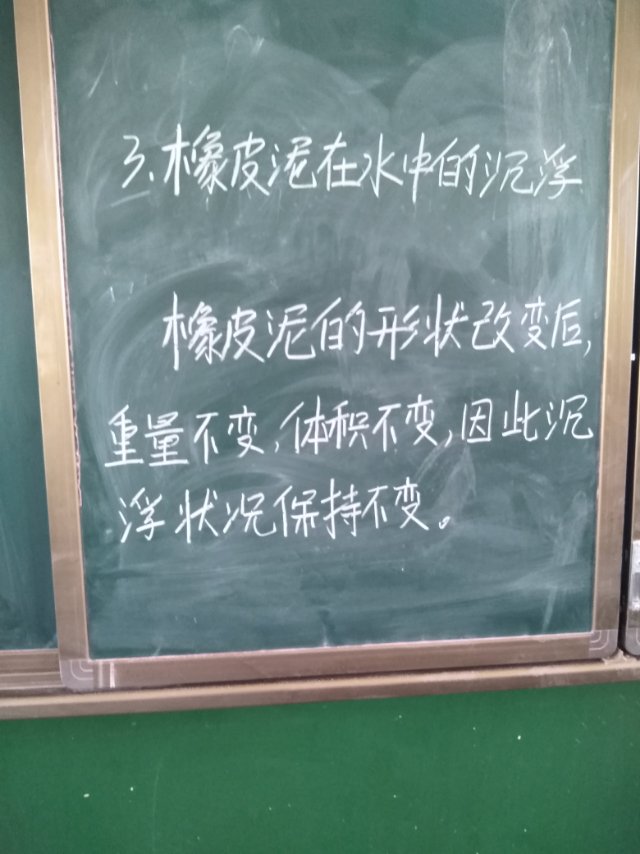 3、橡皮泥在水中的沉浮
橡皮泥的形状改变后,
重量不变,体积不变,因此沉
浮状况保持不变。